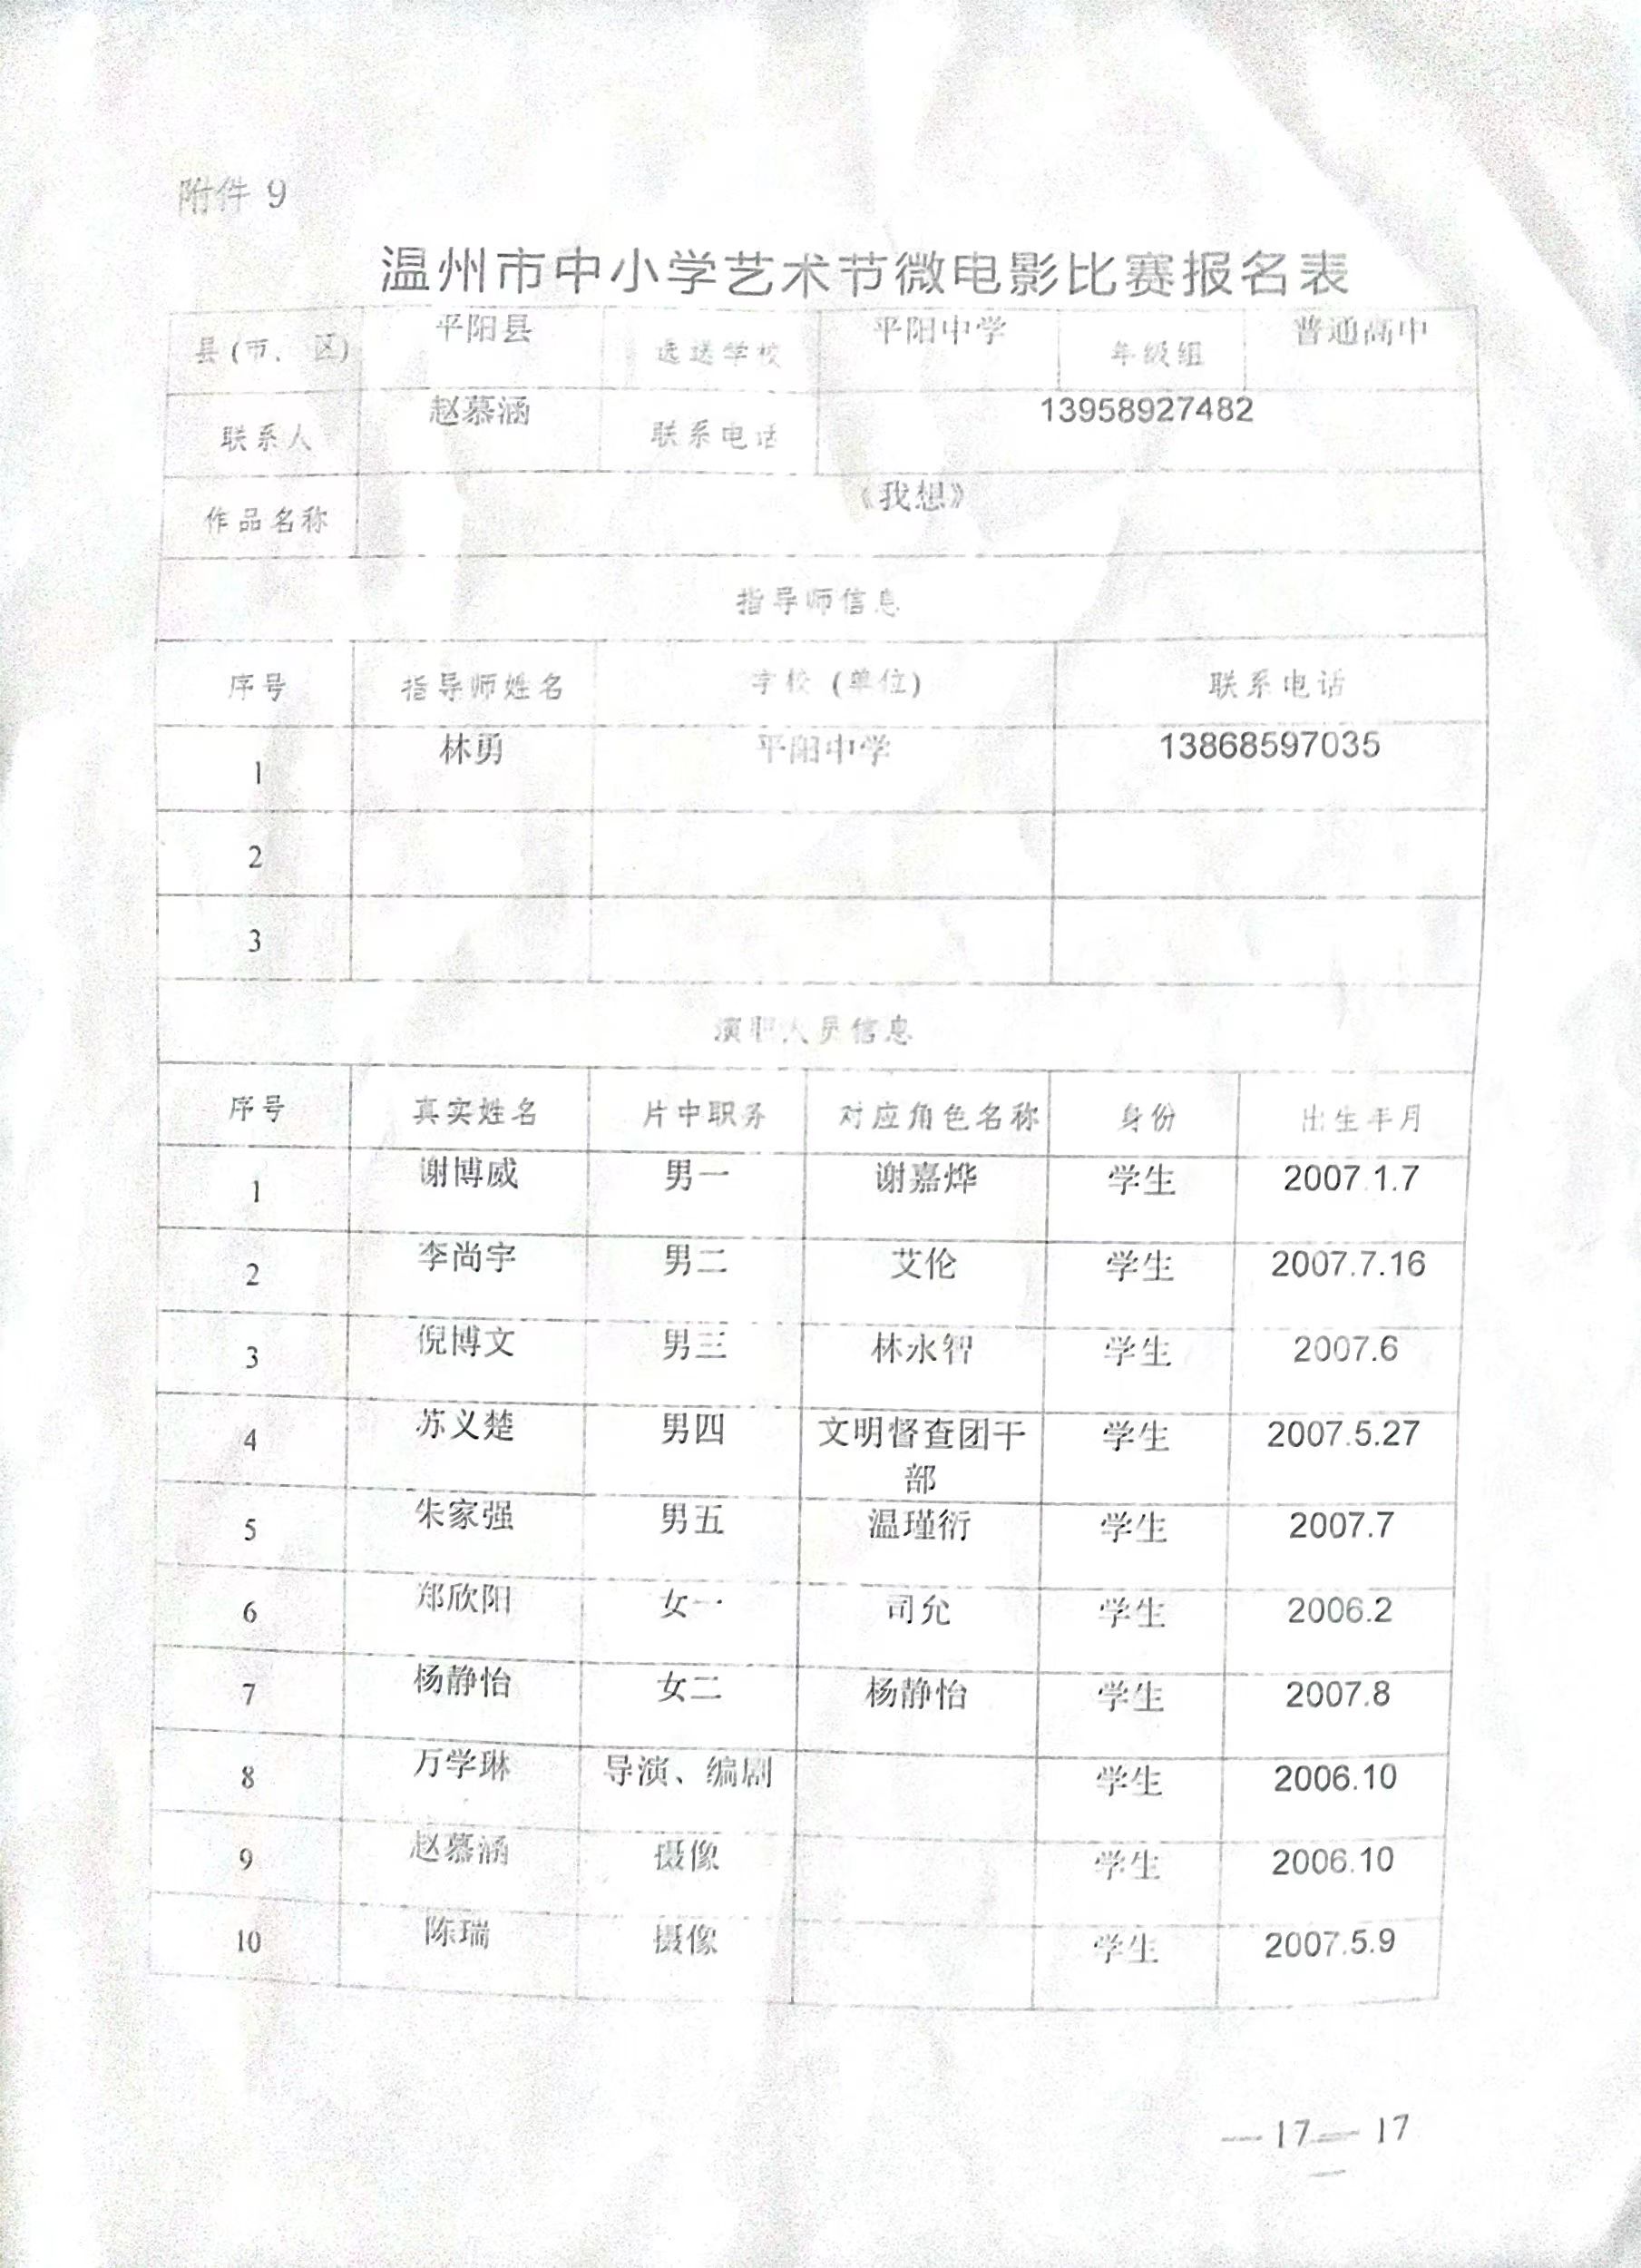 附件 9
温州市中小学艺术节微电影比赛报名表
县(市、区) 平阳县 选送学校 平阳中学 年级组 普通高中
联系人 赵慕涵 联系电话 13958927482
作品名称 《我想》
指导师信息
序号 指导师姓名 学校 (单位) 联系电话
1 林勇 平阳中学 13868597035
2
3
演职人员信息
序号 真实姓名 片中职务 对应角色名称 身份 出生年月
1 谢博威 男一 谢嘉烨 学生 2007.1.7
2 李尚宇 男二 艾伦 学生 2007.7.16
3 倪博文 男三 林永智 学生 2007.6
4 苏义楚 男四 文明督查团干 学生 2007.5.27
部
5 朱家强 男五 温瑾衍 学生 2007.7
6 郑欣阳 女一 司允 学生 2006.2
7 杨静怡 女二 杨静怡 学生 2007.8
8 万学琳 导演、编剧 学生 2006.10
9 赵慕涵 摄像 学生 2006.10
10 陈瑞 摄像 学生 2007.5.9
—17— 17
—